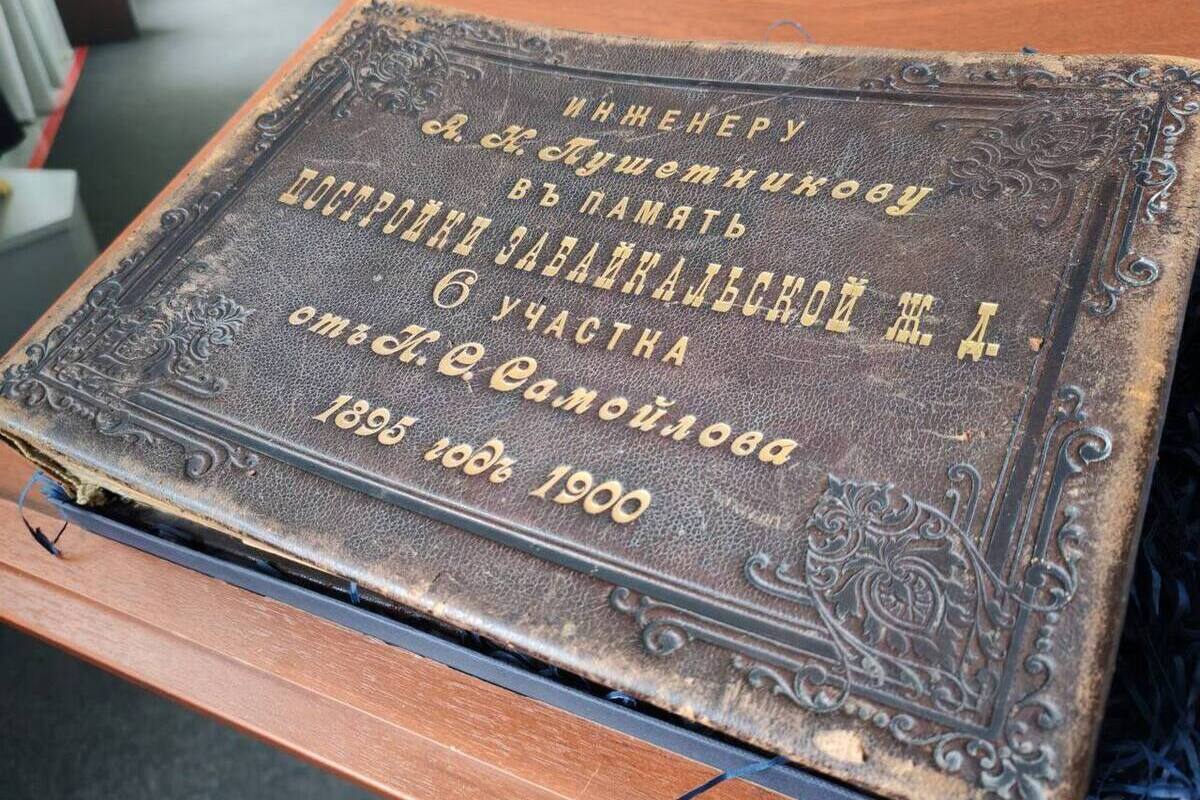 ИНЖЕНЕРУ
А. Н. Пушетникову
ВЪ ПАМЯТЬ
ПОСТРОЙКИ ЗАБАЙКАЛЬСКОЙ Ж. Д.
6 УЧАСТКА
отъ Н. С. Самойлова
1895 годъ 1900